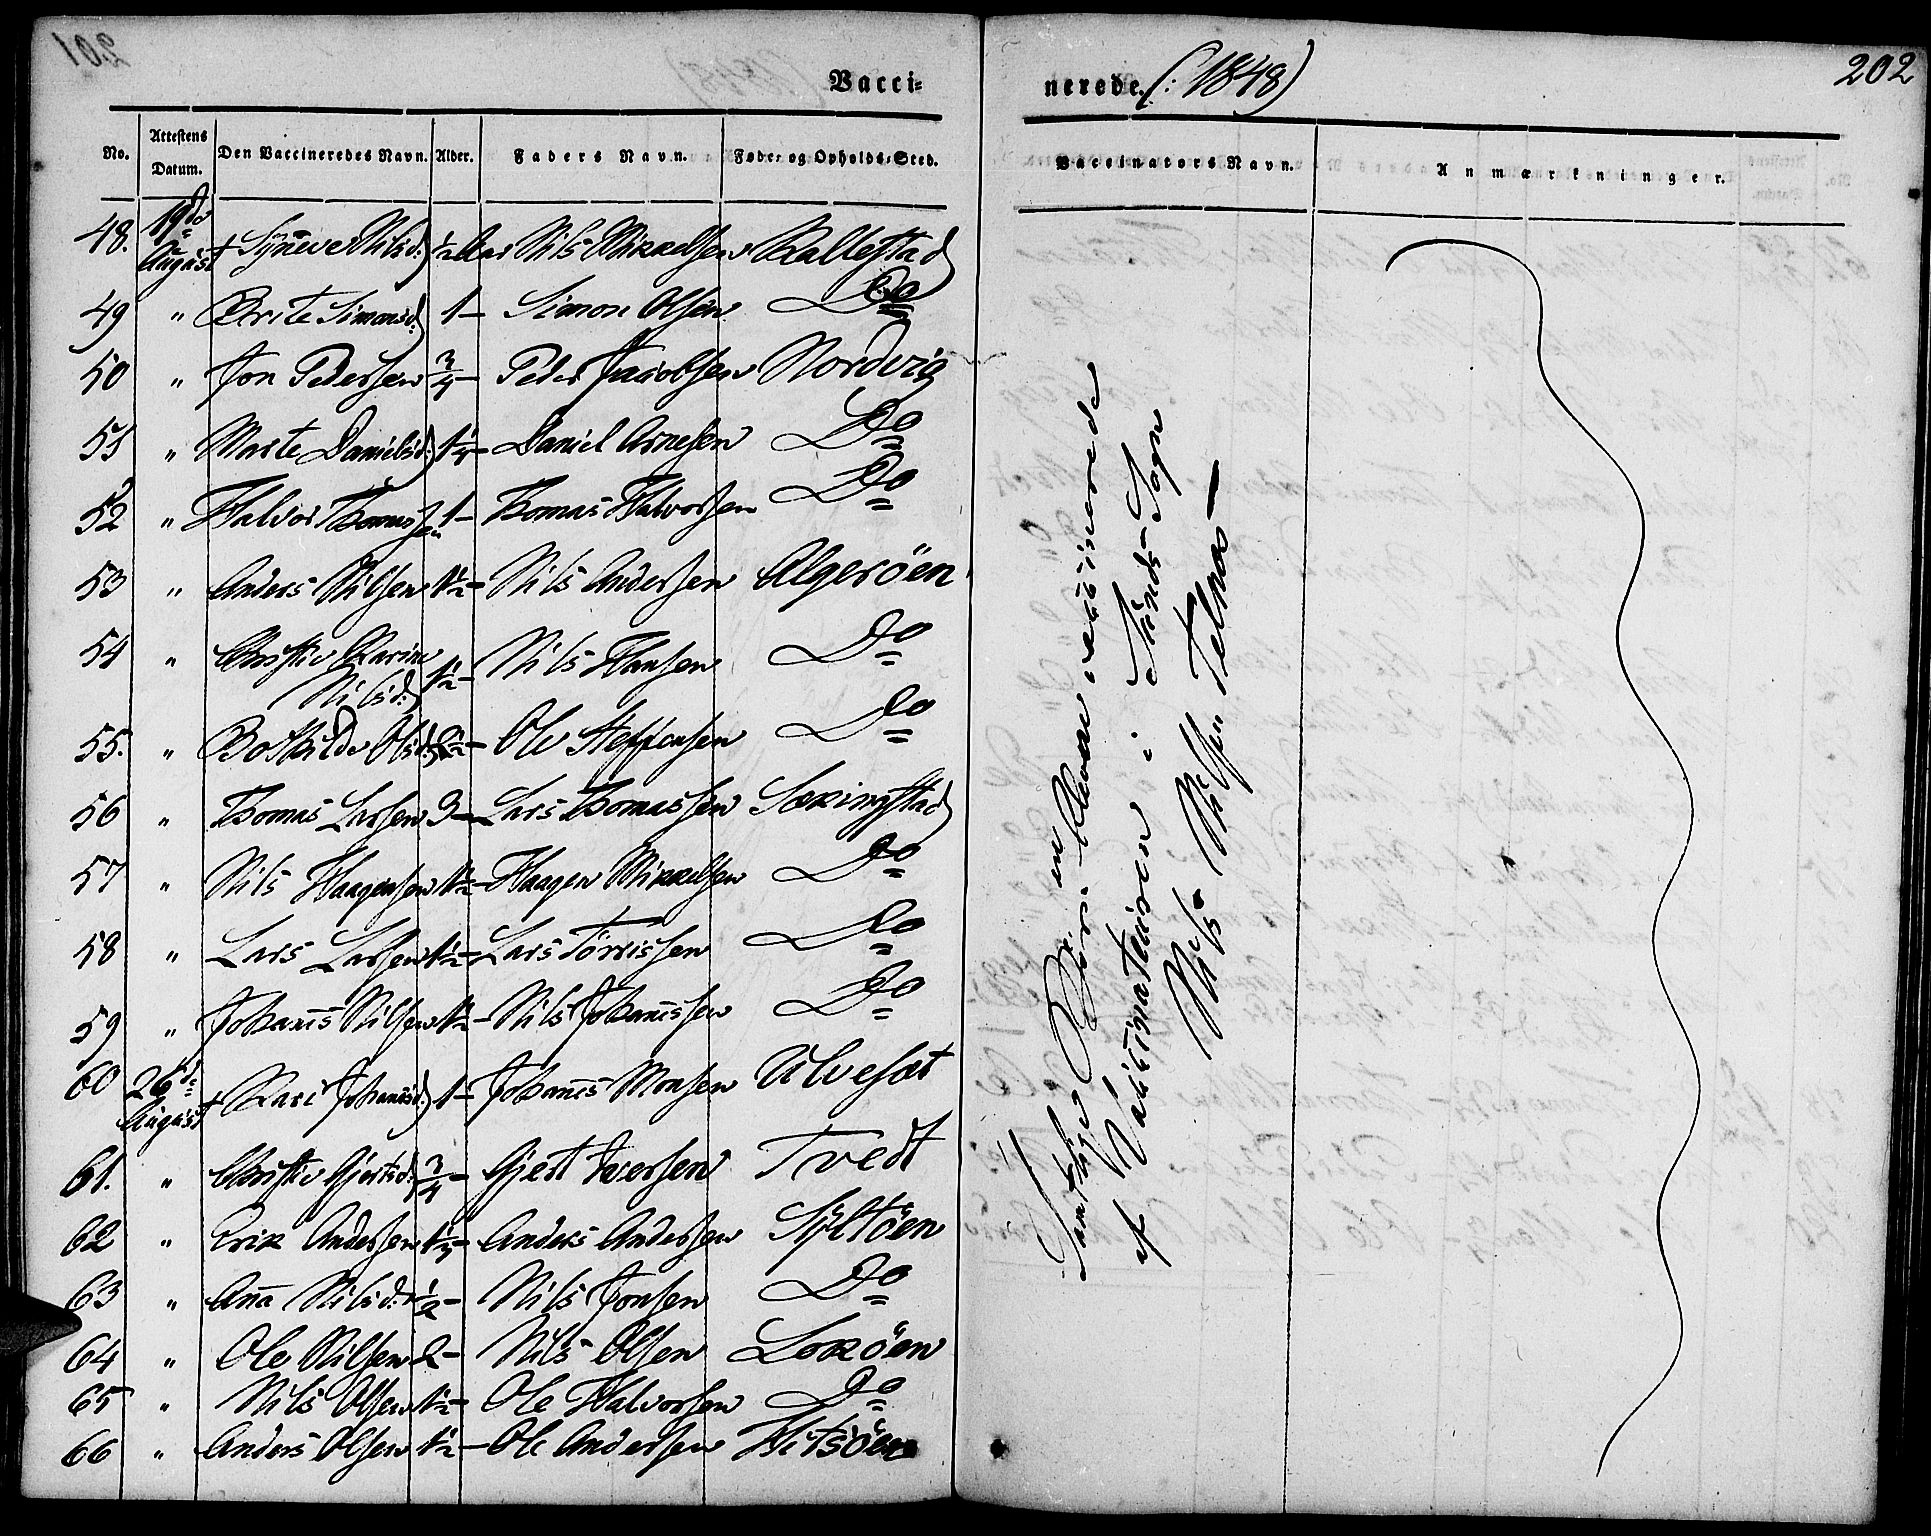 202
Vacci-
nerede. (: 1848)
No. Attestens Datum. Den Vaccineredes Navn. Alder. Faders Navn. Føde- og Opholds-Sted.
Vaccinators Navn. Anmærkninger.
48. 19de August + Synneve Nilsd: ½ Aar Nils Mikkelsen Kallestad
49 " Brite Simonsd: 1 – Simon Olsen Do
50 " Jon Pedersen ¾ – Peder Jacobsen Nordvig
51 " Marte Danielsd: 1¼ – Daniel Arnesen Do
52 " Halvor Thomassen 1 – Thomas Halvorsen Do
53 " Anders Nilsen 1½ – Nils Andersen Algerøen
54 " Christie Karine Nilsd: 1½ – Nils Hansen Do
55. " Bothilde Olsd: Ole Steffensen Do
56 " Thomas Larsen 3 – Lars Thomassen Sækingstad
57 " Nils Haagensen 1½ – Haagen Mikkelsen Do
58 " Lars Larsen 1½ – Lars Tørrissen Do
59 " Johannes Nilsen 1½ – Nils Johannessen Do
60 26de August + Kari Johannisd: 1 – Johannes Monsen Ulveset
61. " Christie Gjertsd: ¾ – Gjert Iversen Tvedt
62 " Erik Andersen 1¼ – Anders Andersen Syltøen
63 " Anna Nilsd: ½ – Nils Jonsen Do
64 " Ole Nilsen 2 – Nils Olsen Lokøen
65 " Nils Olsen 1½ – Ole Halvorsen Do
66 " Anders Olsen 1½ – Ole Andersen Hitsøen
Samtlige Børn ere bleven vakkinerede
af Vakkinateuren i Sunds-Sogn
Nils Nilsen Telnæs –